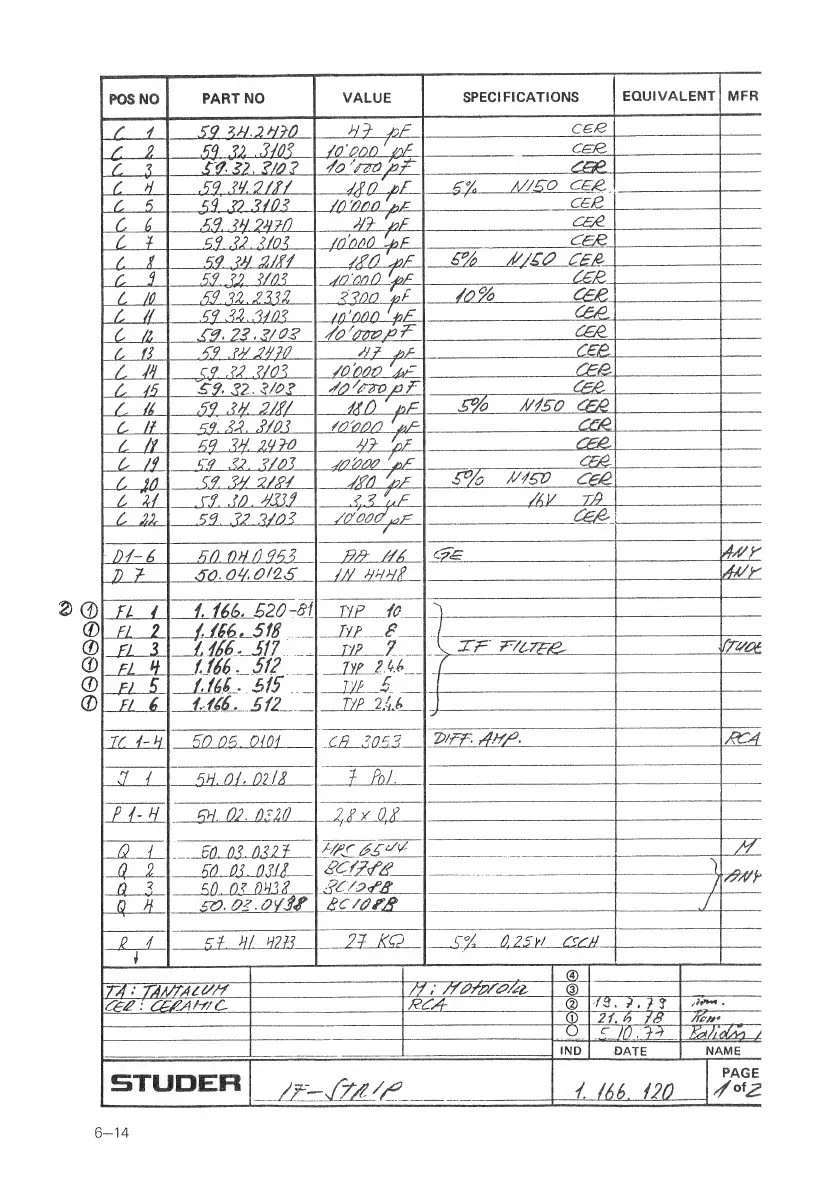 POS NO PART NO VALUE SPECIFICATIONS EQUIVALENT MFR
C 1 59.34.2470 47 pF CER
C 2 59.32.3103 10'000 pF CER
C 3 59.32.3103 10'000 pF CER
C 4 59.34.2181 180 pF 5% N150 CER
C 5 59.32.3103 10'000 pF CER
C 6 59.34.2470 47 pF CER
C 7 59.32.3103 10'000 pF CER
C 8 59.34.2181 180 pF 5% N150 CER
C 9 59.32.3103 10'000 pF CER
C 10 59.32.2332 3300 pF 10% CER
C 11 59.32.3103 10'000 pF CER
C 12 59.23.3103 10'000 pF CER
C 13 59.34.2470 47 pF CER
C 14 59.32.3103 10'000 pF CER
C 15 59.32.3103 10'000 pF CER
C 16 59.34.2181 180 pF 5% N150 CER
C 17 59.32.3103 10'000 pF CER
C 18 59.34.2470 47 pF CER
C 19 59.32.3103 10'000 pF CER
C 20 59.34.2181 180 pF 5% N150 CER
C 21 59.30.4339 3,3 µF 16V TA
C 22 59.32.3103 10'000 pF CER
D1-6 50.04.0953 AA 116 GE ANY
D 7 50.04.0125 1N 4448 ANY
② ① FL 1 1.166.520-81 TYP 10
① FL 2 1.166.518 TYP 8
① FL 3 1.166.517 TYP 7 IF FILTER STUDE
① FL 4 1.166.512 TYP 2.4.6
① FL 5 1.166.515 TYP 5
① FL 6 1.166.512 TYP 2.4.6
IC 1-4 50.05.0101 CA 3053 DIFF. AMP. RCA
J 1 54.01.0218 7 Pol.
P 1-4 54.02.0320 2,8 x 0,8
Q 1 50.03.0327 M
Q 2 50.03.0318 BC178B
Q 3 50.03.0438 BC108B ANY
Q 4 50.03.0438 BC108B
R 1 57.41.4273 27 KΩ 5% 0,25W CSCH
TA : TANTALUM M : Motorola ④
③
CER : CERAMIC RCA ② 19.7.79
① 21.6.78
○ 5.10.77
IND DATE NAME
STUDER IF-STRIP 1.166.120 PAGE 1 of 2
6–14